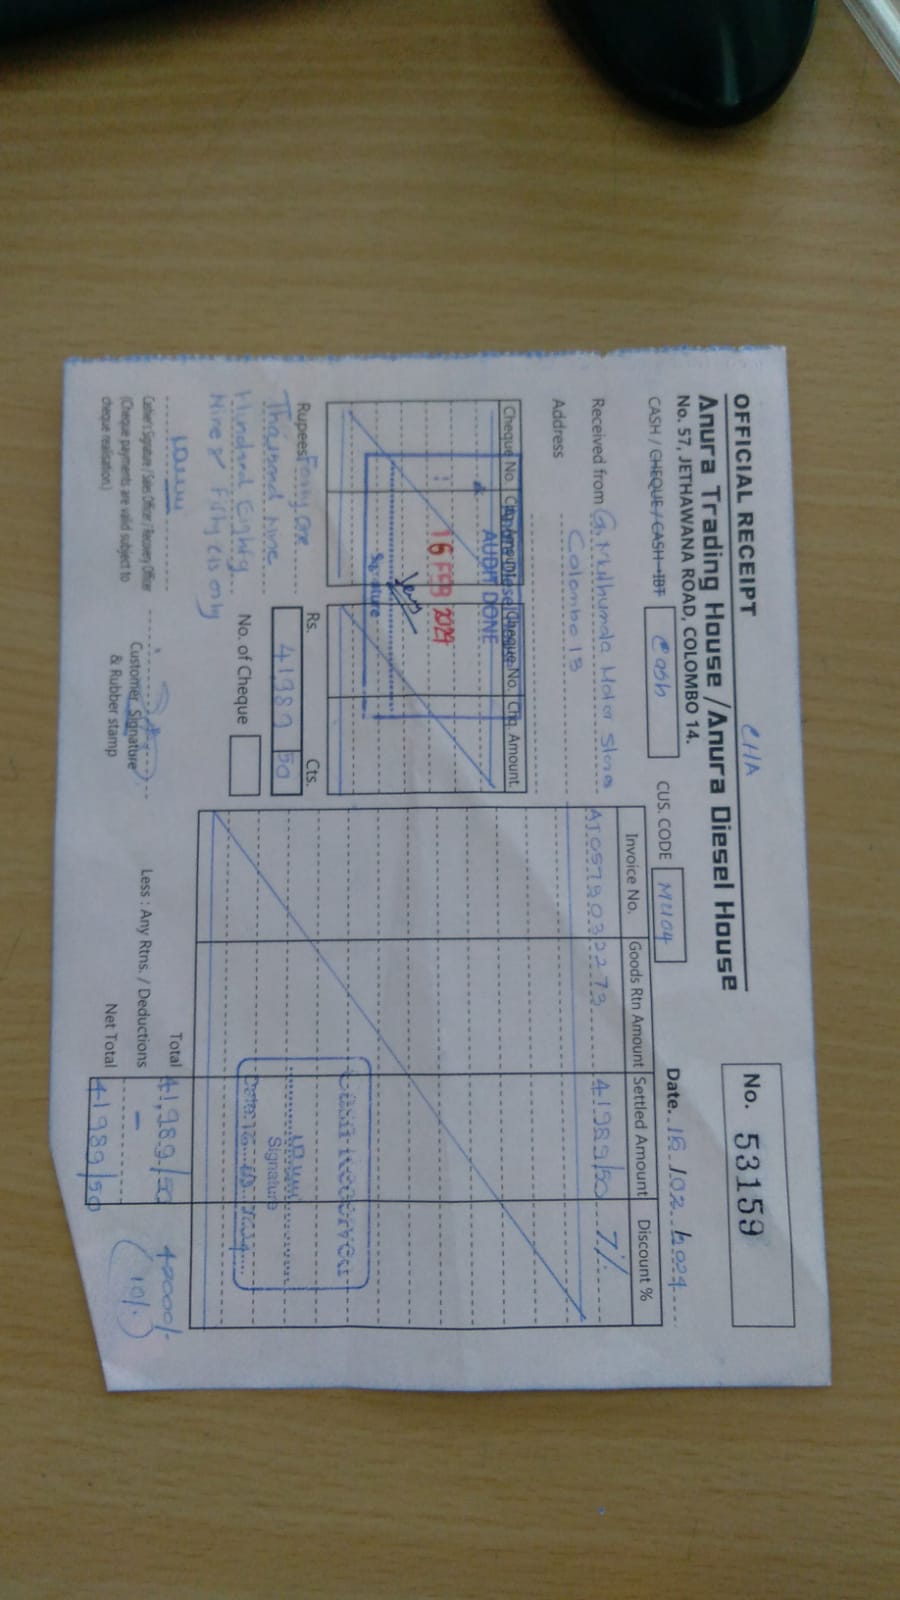 OFFICIAL RECEIPT
CHA
No. 53159
Anura Trading House / Anura Diesel House
No. 57, JETHAWANA ROAD, COLOMBO 14.
CASH / CHEQUE / CASH-IBT Cash CUS. CODE MU04 Date. 16/02/2024
Received from G. Milhunda Motor Stores
Colombo 13
Address
Cheque No. Chq. Amount Cheque No. Chq. Amount
Anura Diesel House
AUDIT DONE
16 FEB 2024
Signature
Invoice No. Goods Rtn Amount Settled Amount Discount %
AT057203 2273 41989/50 7%
Rupees Forty one
Thousand Nine
Hundred Eighty
Nine & Fifty cts only
Rs. Cts.
41989 50
No. of Cheque
CASH RECEIVED
Signature
Date: 16
Total 41,989/50 42000/-
Less : Any Rtns. / Deductions –
Net Total 41989/50 (10/-)
Cashier's Signature / Sales Officer / Recovery Officer
(Cheque payments are valid subject to
cheque realisation.)
Customer Signature
& Rubber stamp